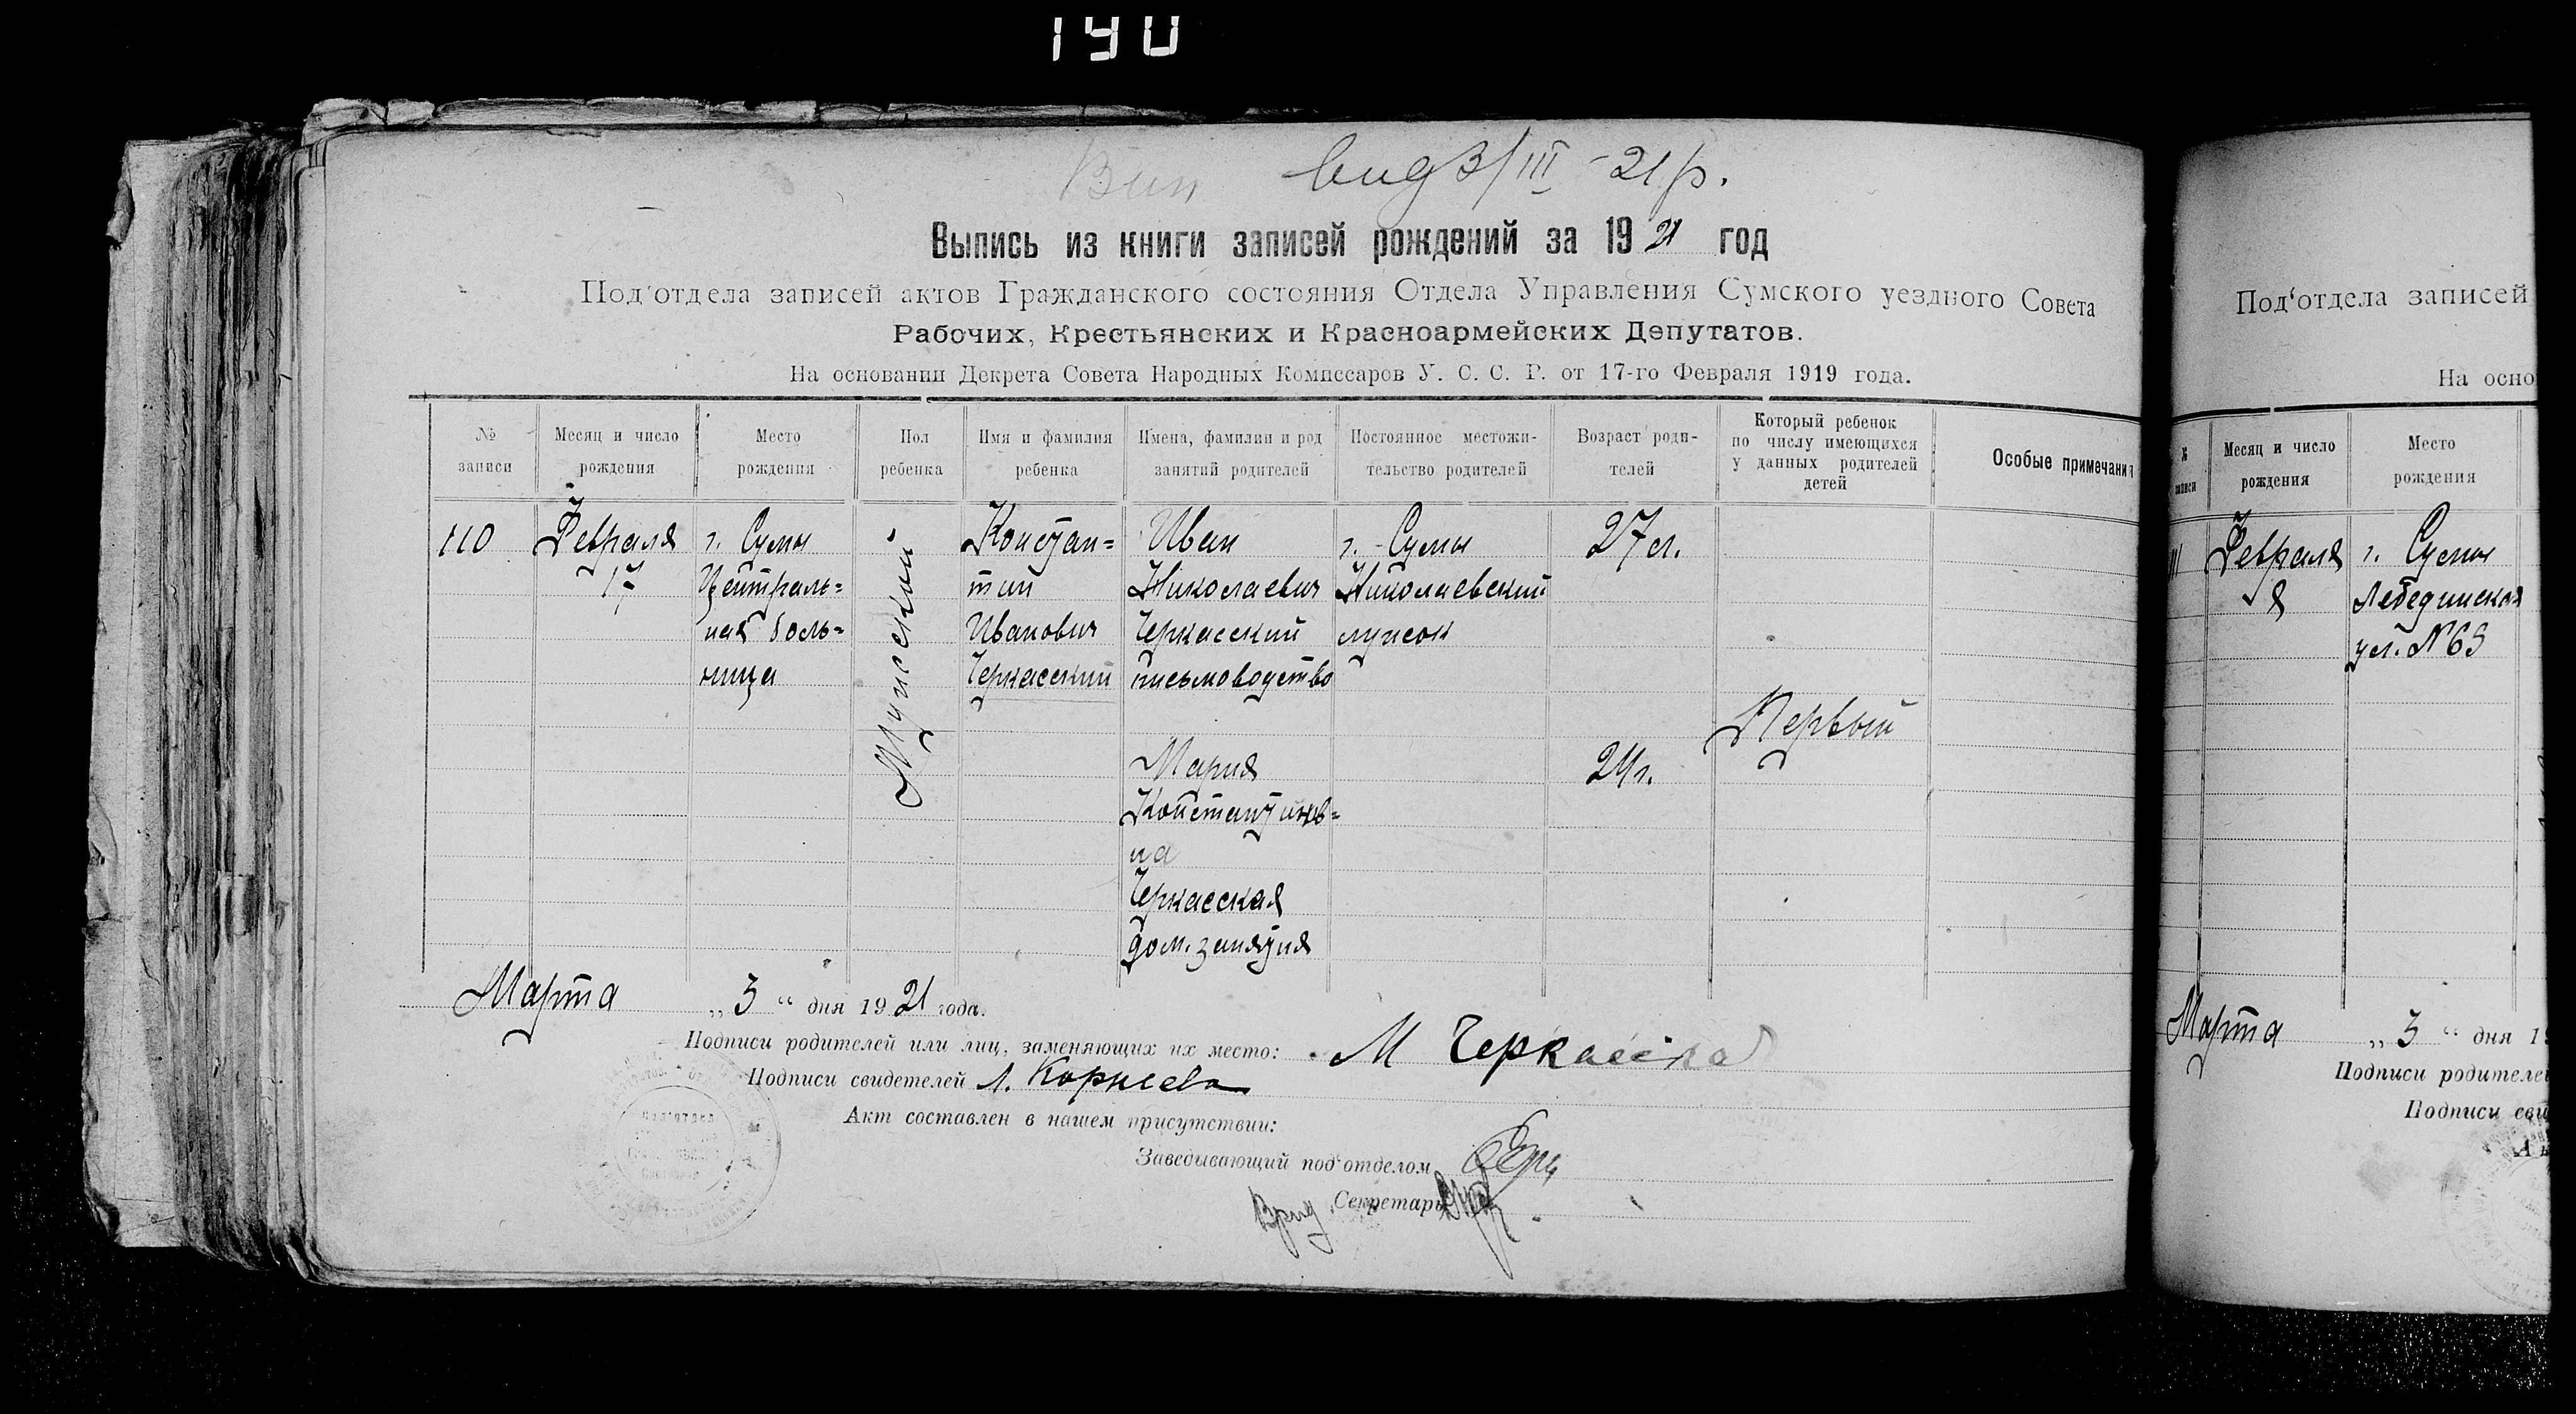 190
Вид 3/III-21 р.
Выпись из книги записей рождений за 1921 год
Под'отдела записей актов Гражданского состояния Отдела Управления Сумского уездного Совета
Рабочих, Крестьянских и Красноармейских Депутатов.
На основании Декрета Совета Народных Комиссаров У. С. С. Р. от 17-го Февраля 1919 года.
№ записи
Месяц и число рождения
Место рождения
Пол ребенка
Имя и фамилия ребенка
Имена, фамилии и род занятий родителей
Постоянное местожи-
тельство родителей
Возраст роди-
телей
Который ребенок
по числу имеющихся
у данных родителей
детей
Особые примечания
110
Февраля
17
г. Сумы
Централь=
ная боль=
ница
Мужеский
Констан=
тин
Иванович
Черкасский
Иван
Николаевич
Черкасский
письмоводство
Мария
Константинов=
на
Черкасская
дом. занятия
г. Сумы
Николаевский
27 л.
24 г.
Первый
Марта „3“ дня 1921 года.
Подписи родителей или лиц, заменяющих их место: М Черкасская
Подписи свидетелей Л. Корнеева
Акт составлен в нашем присутствии:
Заведывающий под'отделом
Врид Секретарь
Под'отдела записей
На осно
№ записи
Месяц и число
рождения
Место
рождения
111
Февраля
г. Сумы
Лебединская
ул. №
Марта „3“ дня 19
Подписи родителей
Подписи сви